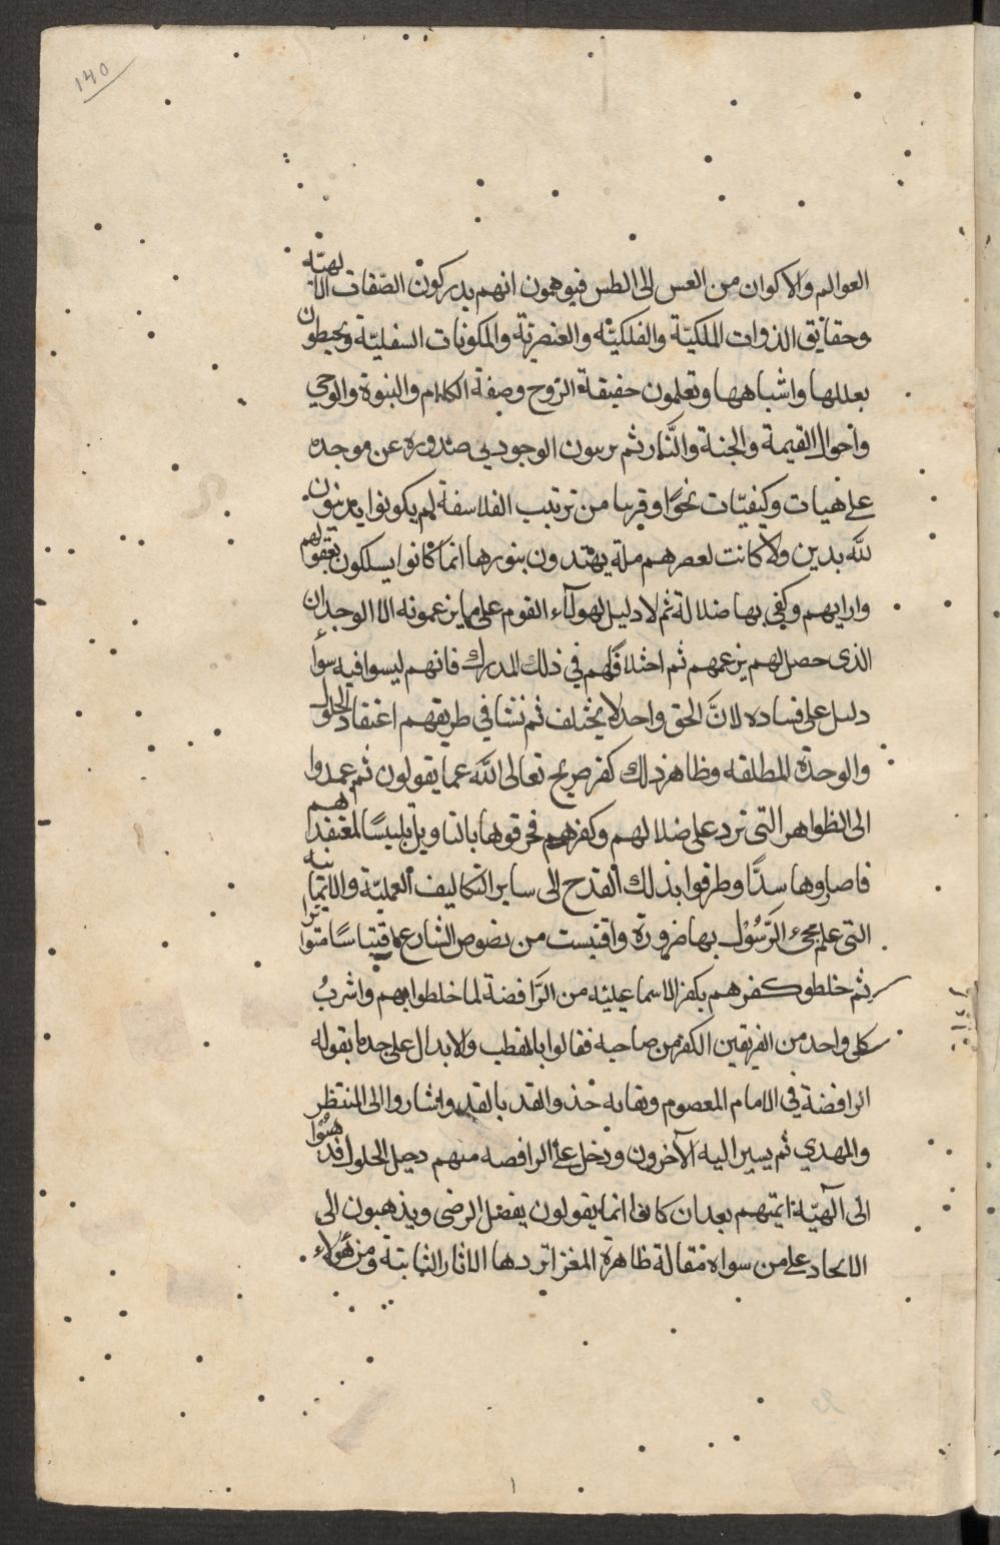 ١٤٥
العوالم والاكوان من العس الى الطس فيوهمون انهم يدركون الصّفات الالهيّه
وحقايق الذوات الملكيّة والفلكيّه والعنصريّة والمكونات السفليّة ويحيطون
بعللها واشباهها وتعلمون حقيقة الرّوح وصفة الكلام والنبوة والوحي
واحوال القيمة والجنة والنَّار ثم يرىبون الوجود في صدوره عن موجده
على هيات وكيفيّات نحوًا وقريبا من ترتيب الفلاسفة لم يكونوا يدينون
للّه بدين ولا كانت لعصرهم ملة يهتدون بنورها انما كانوا يسلكون بعقولهم
وارايهم وكفى بها ضلالة ثم لا دليل لهولآء القوم على ما يزعمونه الا الوجدان
الذى حصل لهم بزعمهم ثم اختلافهم في ذلك المدرك فانهم ليسوا فيه سوآ
دليل على فساده لانَّ الحق واحد لا يختلف ثم نشا في طريقهم اعتقاد الحلول
والوحدة المطلقه وظاهر ذلك كفر صريح تعالى اللّه عما يقولون ثم عمدوا
الى الظواهر التى ترد على ضلالهم وكفرهم فحرقوها بالتاويل تلبيسًا لمعتقدهم
فاصاروها سدًّا وطرقوا بذلك القدح الى ساير التكاليف العمليّة والايمانيه
التى علم مجىء الرَّسُوْل بها ضرورة واقتبست من نصوص الشارع اقتباسًا متواترا
ثم خلطو كفرهم بكفر الاسماعيليّه من الرَّافضة لما خلطوا بهم واشربُ
كل واحد من الفريقين الكفر من صاحبه فقالوا بالقطب والابدال على حد ما يقوله
الرافضة في الامام المعصوم ونقابه حذو القد بالقد واشاروا الى المنتظر
والمهدي ثم يسير اليه الآخرون ودخل على الرافضه منهم دخل الحلول فذهبُوا
الى آلهيّة ايمّتهم بعد ان كانوا انما يقولون بفضل الرضى ويذهبون الى
الاتحاد على من سواه مقالة ظاهرة المغزا تردها الاثار الثابتة ومن هَؤلاء